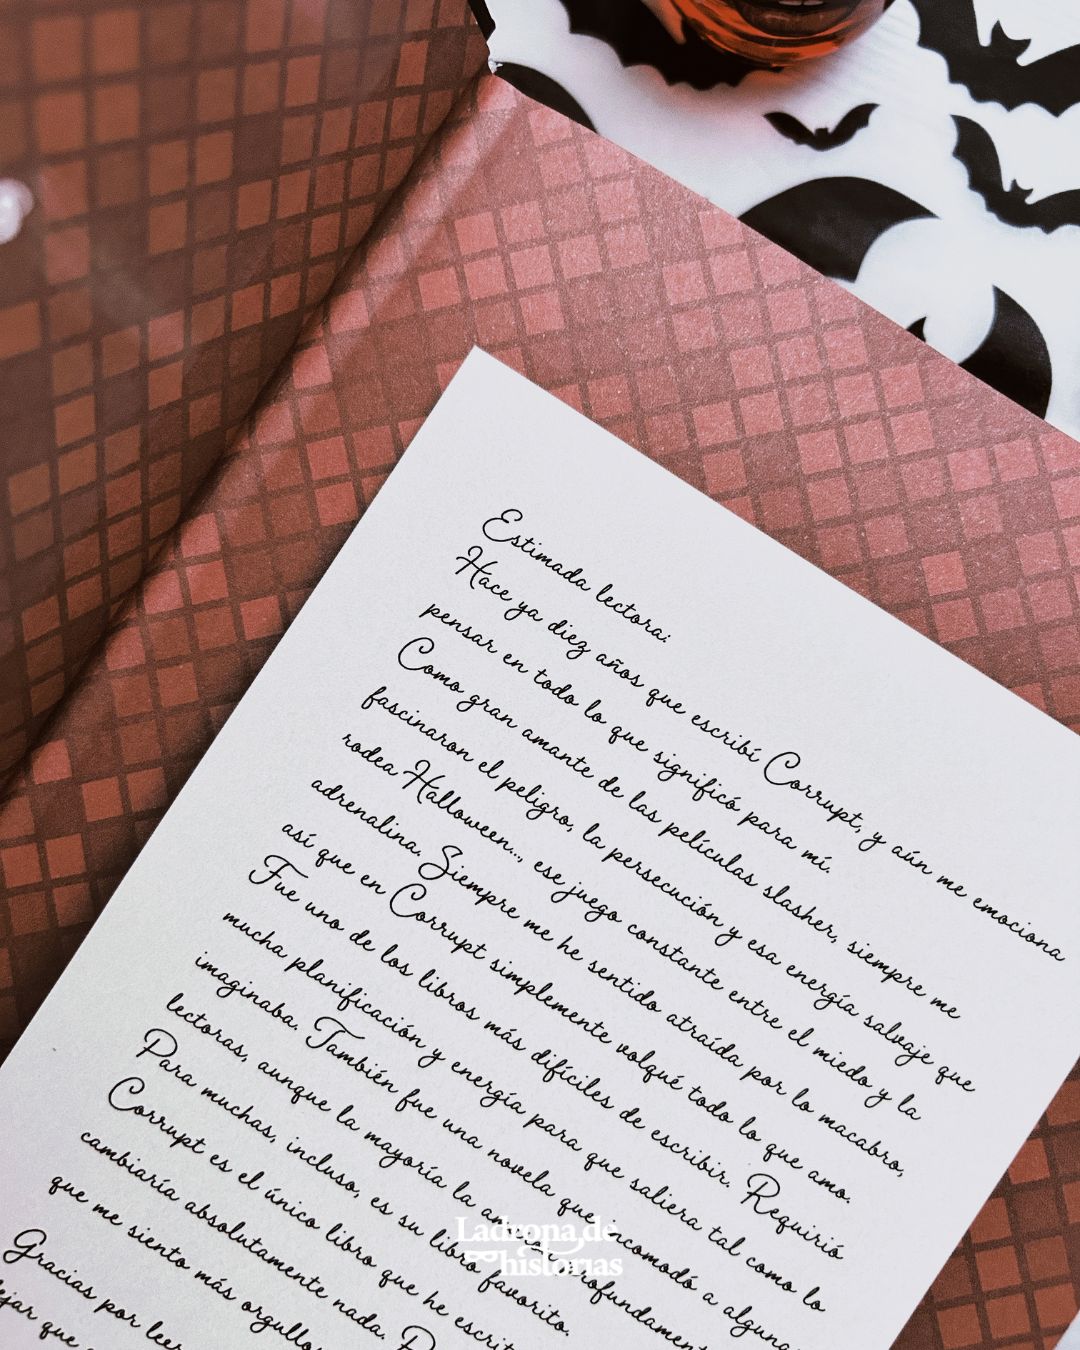 Estimada lectora:
Hace ya diez años que escribí Corrupt, y aún me emociona
pensar en todo lo que significó para mí.
Como gran amante de las películas slasher, siempre me
fascinaron el peligro, la persecución y esa energía salvaje que
rodea Halloween..., ese juego constante entre el miedo y la
adrenalina. Siempre me he sentido atraída por lo macabro,
así que en Corrupt simplemente volqué todo lo que amo.
Fue uno de los libros más difíciles de escribir. Requirió
mucha planificación y energía para que saliera tal como lo
imaginaba. También fue una novela que incomodó a algunas
lectoras, aunque la mayoría la
Para muchas, incluso, es su libro favorito.
Corrupt es el único libro que he escrito
cambiaría absolutamente nada.
que me siento más
Gracias por leer
que
Ladrona de
historias